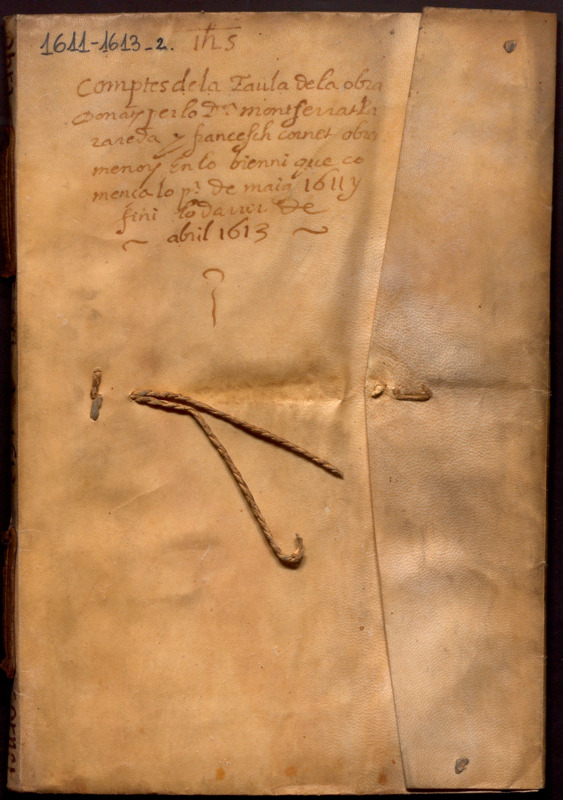 1611-1613-2.
ihs
Comptes de la Taula de la obra
Donats per lo Dr montserrat
y francesch cornet obrs
menors En lo bienni que co
mença lo pr de maig 1611 y
fini lo darrer de
abril 1613